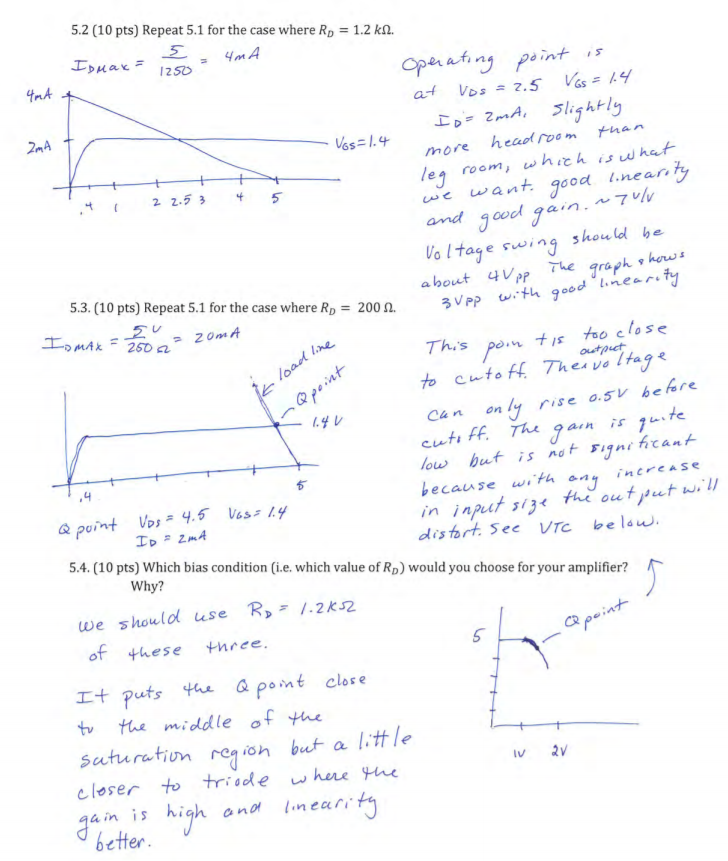 5.2 (10 pts) Repeat 5.1 for the case where R_D = 1.2 kΩ.
I_DMAX = 5/1250 = 4mA
4mA
2mA
VGS=1.4
.4 1 2 2.5 3 4 5
Operating point is
at VDS = 2.5 VGS = 1.4
ID = 2mA, Slightly
more headroom than
leg room, which is what
we want. good linearity
and good gain. ~7 V/V
Voltage swing should be
about 4Vpp The graph shows
3Vpp with good linearity
5.3. (10 pts) Repeat 5.1 for the case where R_D = 200 Ω.
I_DMAX = 5V/250Ω = 20mA
load line
Q point
1.4V
.4 5
Q point VDS = 4.5 VGS = 1.4
ID = 2mA
This point is too close
to cutoff. The output voltage
can only rise 0.5V before
cutoff. The gain is quite
low but is not significant
because with any increase
in input size the output will
distort. See VTC below.
5.4. (10 pts) Which bias condition (i.e. which value of R_D) would you choose for your amplifier?
Why?
We should use R_D = 1.2KΩ
of these three.
It puts the Q point close
to the middle of the
saturation region but a little
closer to triode where the
gain is high and linearity
better.
5
Q point
1V 2V